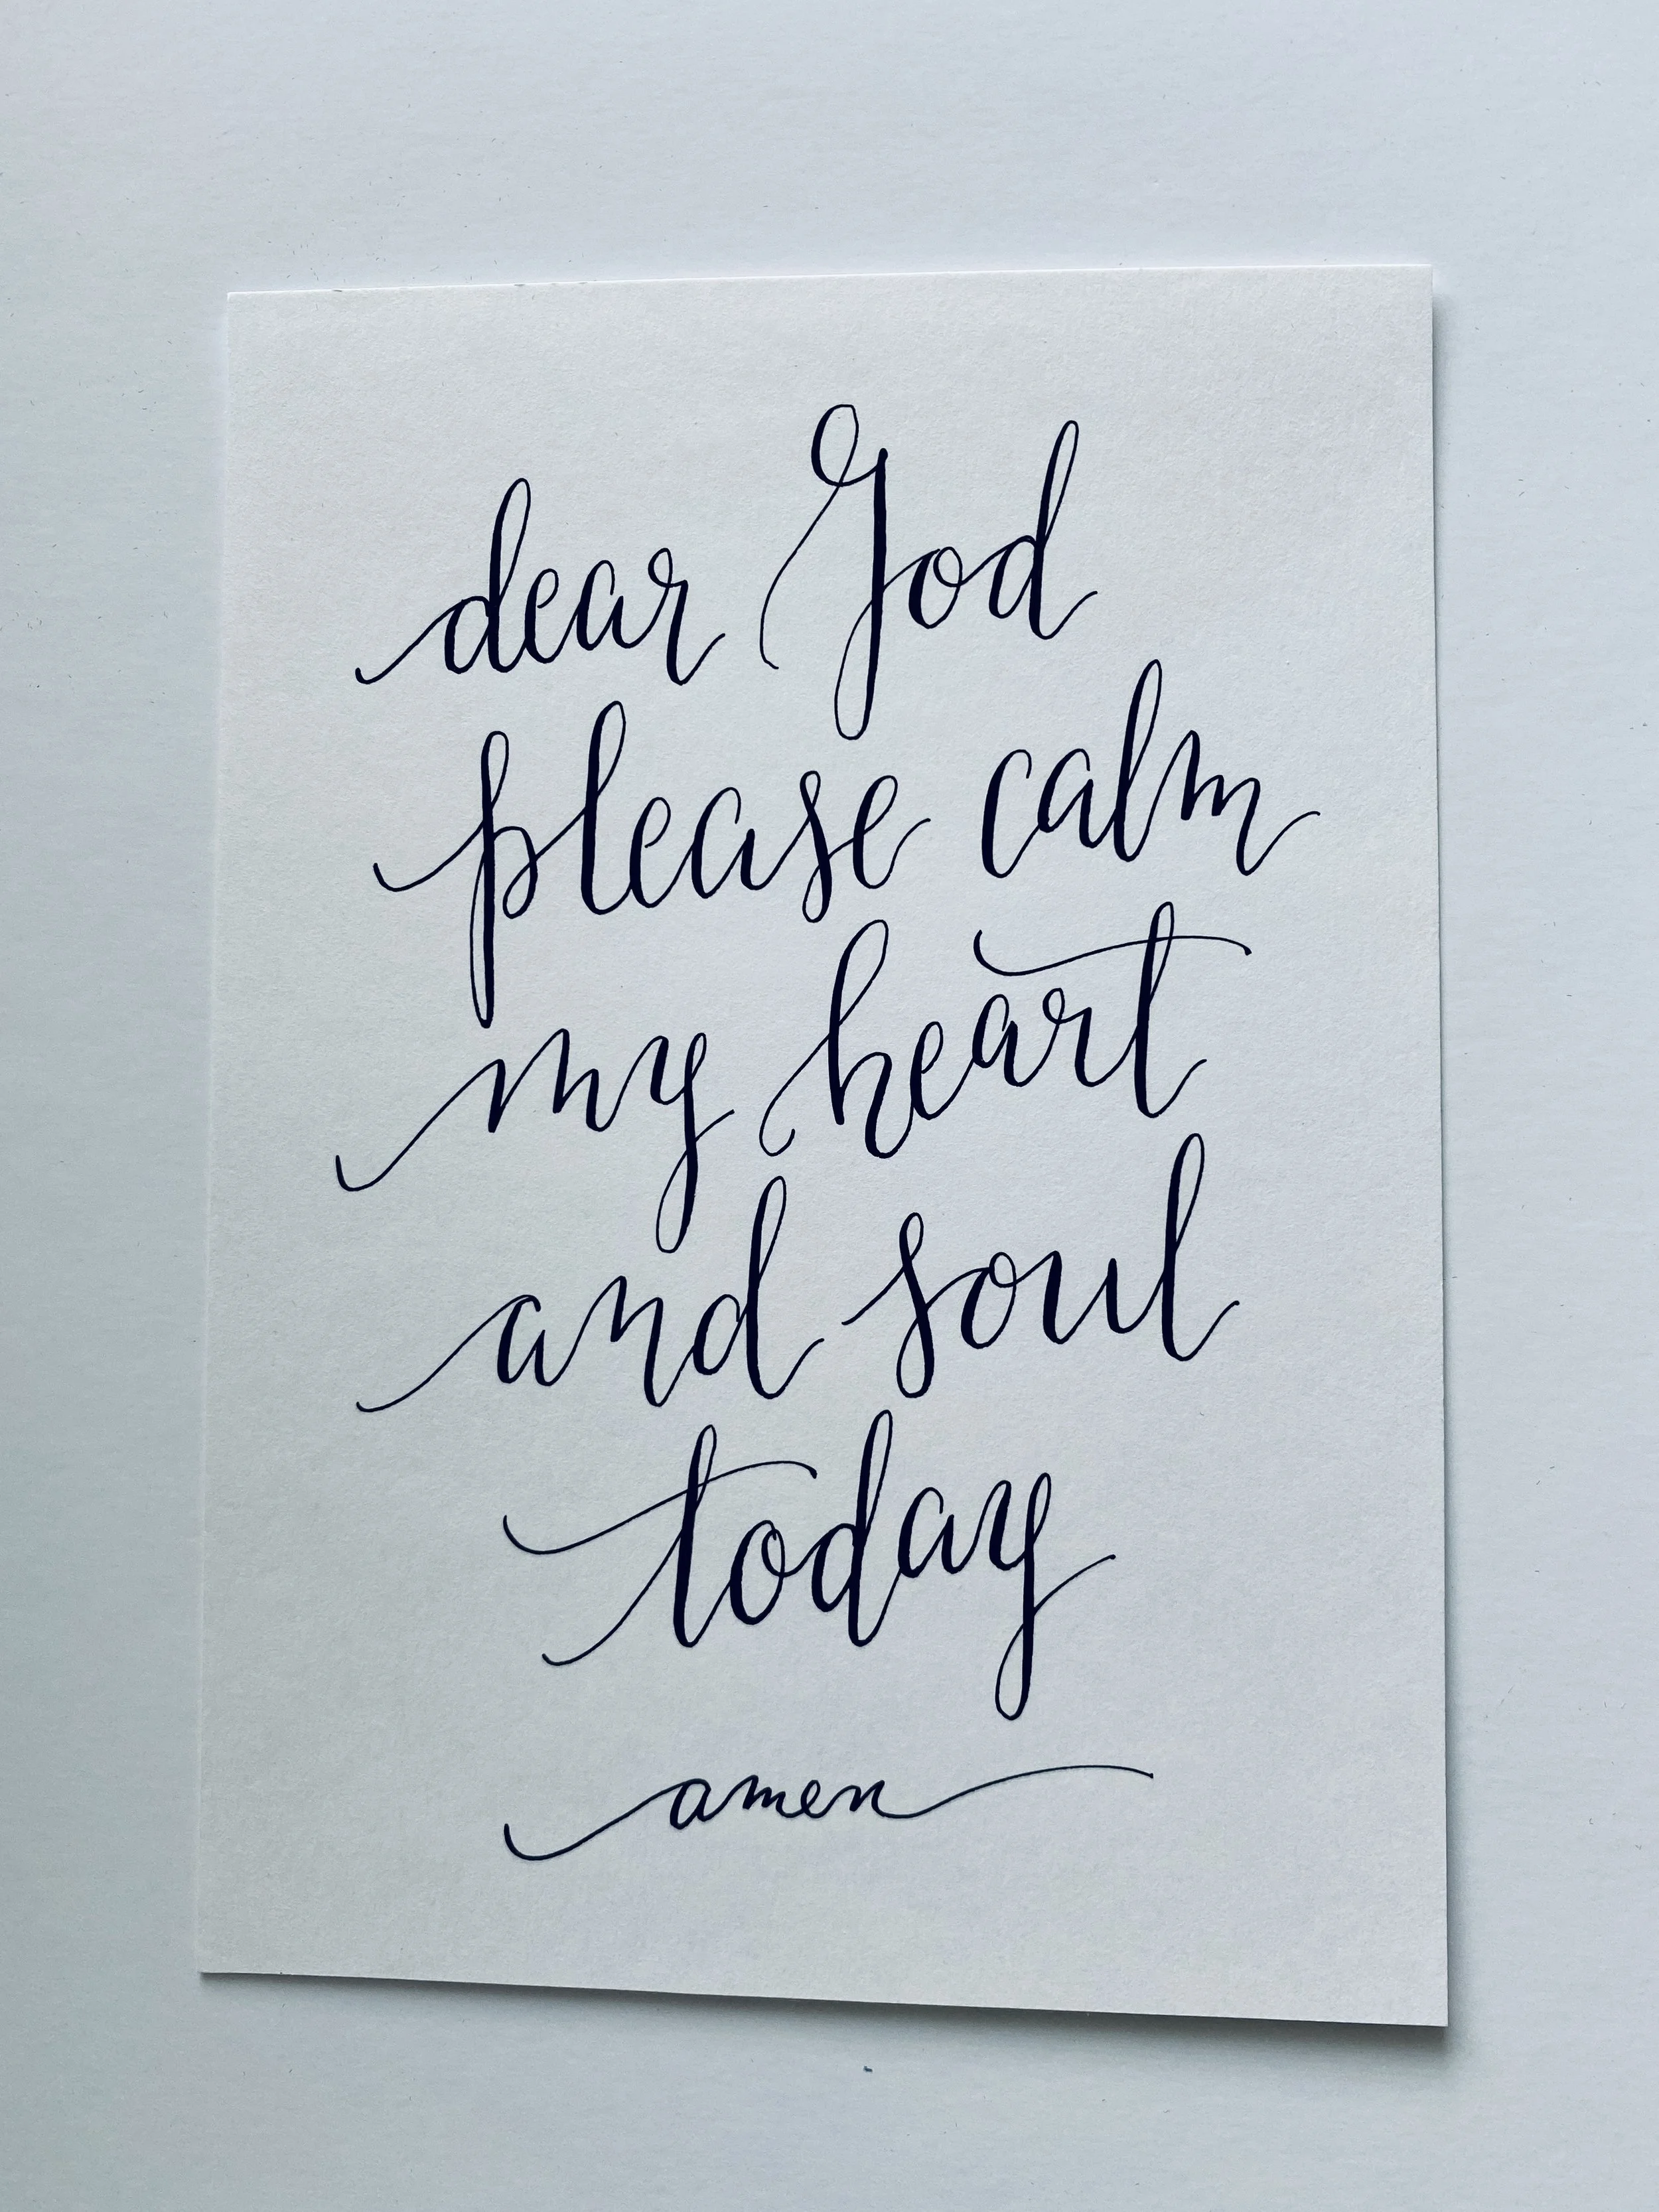 dear God
please calm
my heart
and soul
today
amen